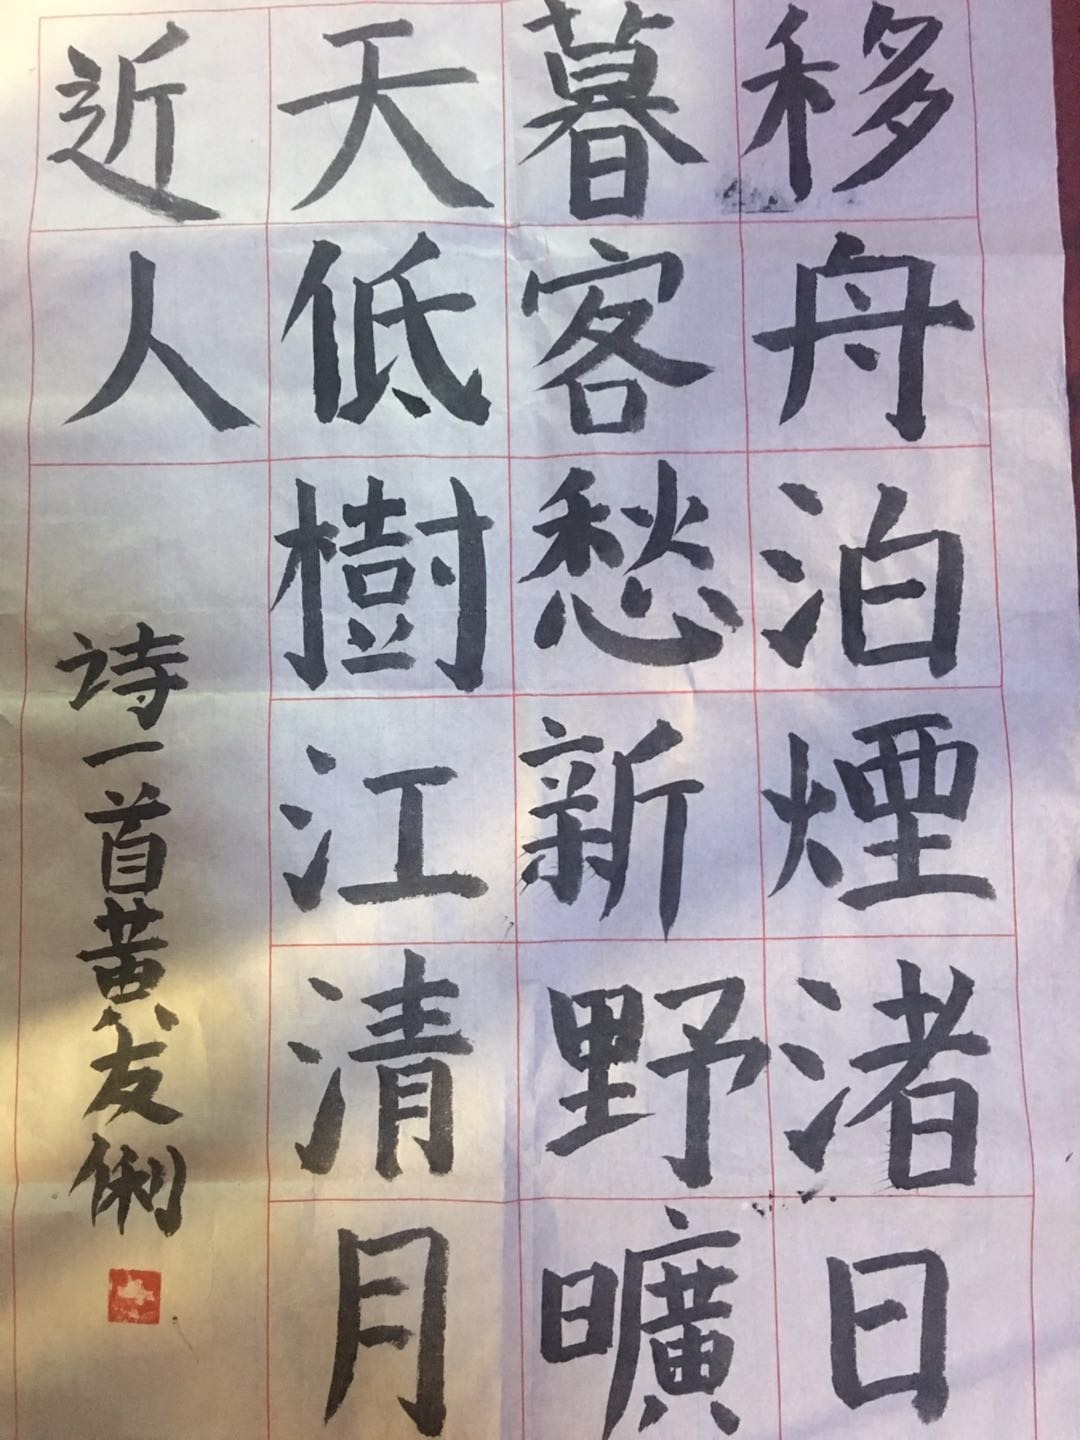 移舟泊煙渚日
暮客愁新野曠
天低樹江清月
近人
诗一首黄友俐